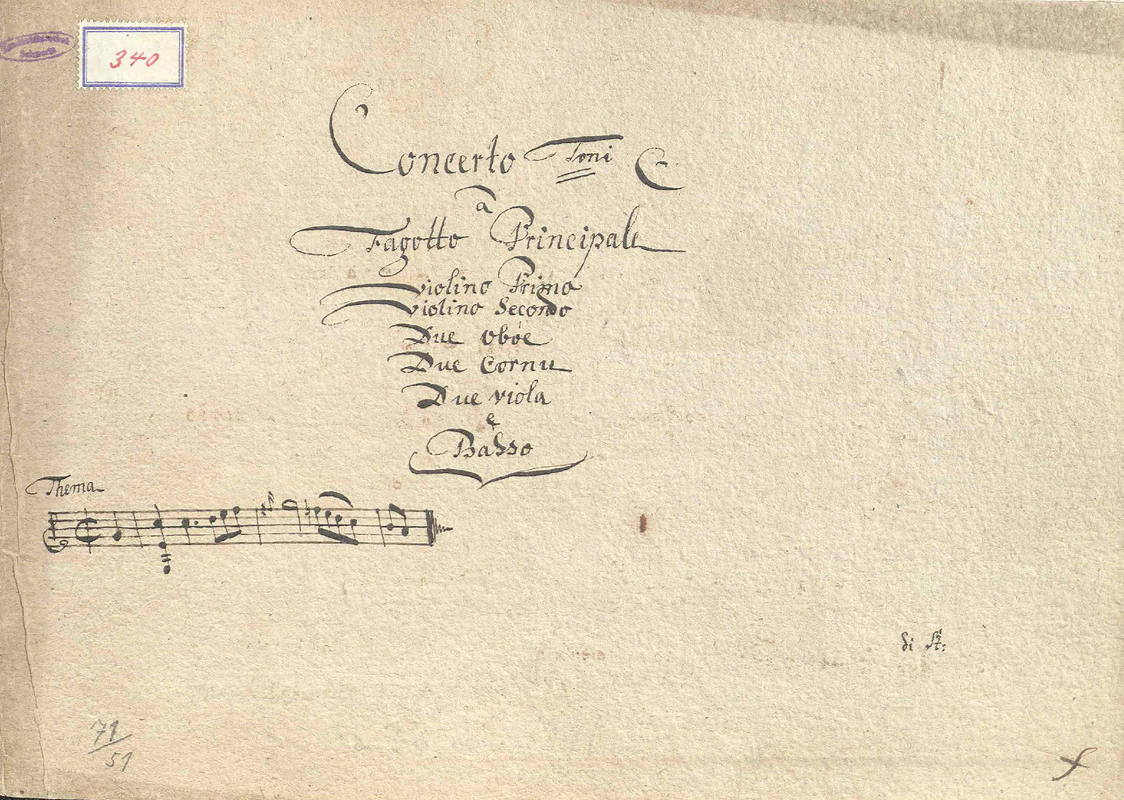 340
Concerto Toni C
a
Fagotto Principale
Violino Primo
Violino Secondo
Due Oboe
Due Cornu
Due Viola
e
Basso
Thema
di St:
71
51